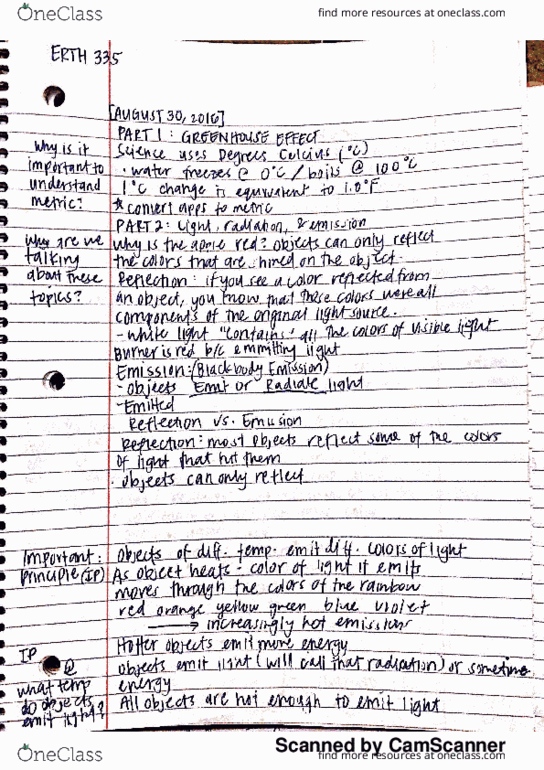 OneClass
find more resources at oneclass.com
ERTH 335
[AUGUST 30, 2016]
PART 1 : GREENHOUSE EFFECT
Why is it important to understand metric?
Science uses Degrees Celcius (°C)
· water freezes @ 0°C / boils @ 100°C
1°C change is equivalent to 1.0°F
* convert apps to metric
PART 2: Light, radiation, & emission
why are we talking about these topics?
Why is the apple red? objects can only reflect
the colors that are shined on the object
Reflection: if you see a color reflected from
an object, you know that these colors were all
components of the original light source.
- white light "contains" all the colors of visible light
Burner is red b/c emmitting light
Emission: (Blackbody Emission)
- objects Emit or Radiate light
- Emitted
Reflection vs. Emission
Reflection: most objects reflect some of the colors
of light that hit them
· objects can only reflect
Important principle (IP) :
Objects of diff. temp. emit diff. colors of light
As object heats - color of light it emits
moves through the colors of the rainbow
red orange yellow green blue violet
→ increasingly hot emissions
IP
Hotter objects emit more energy
@ what temp do objects emit light?
objects emit light (will call that radiation) or sometime
energy
All objects are hot enough to emit light
Scanned by CamScanner
OneClass
find more resources at oneclass.com